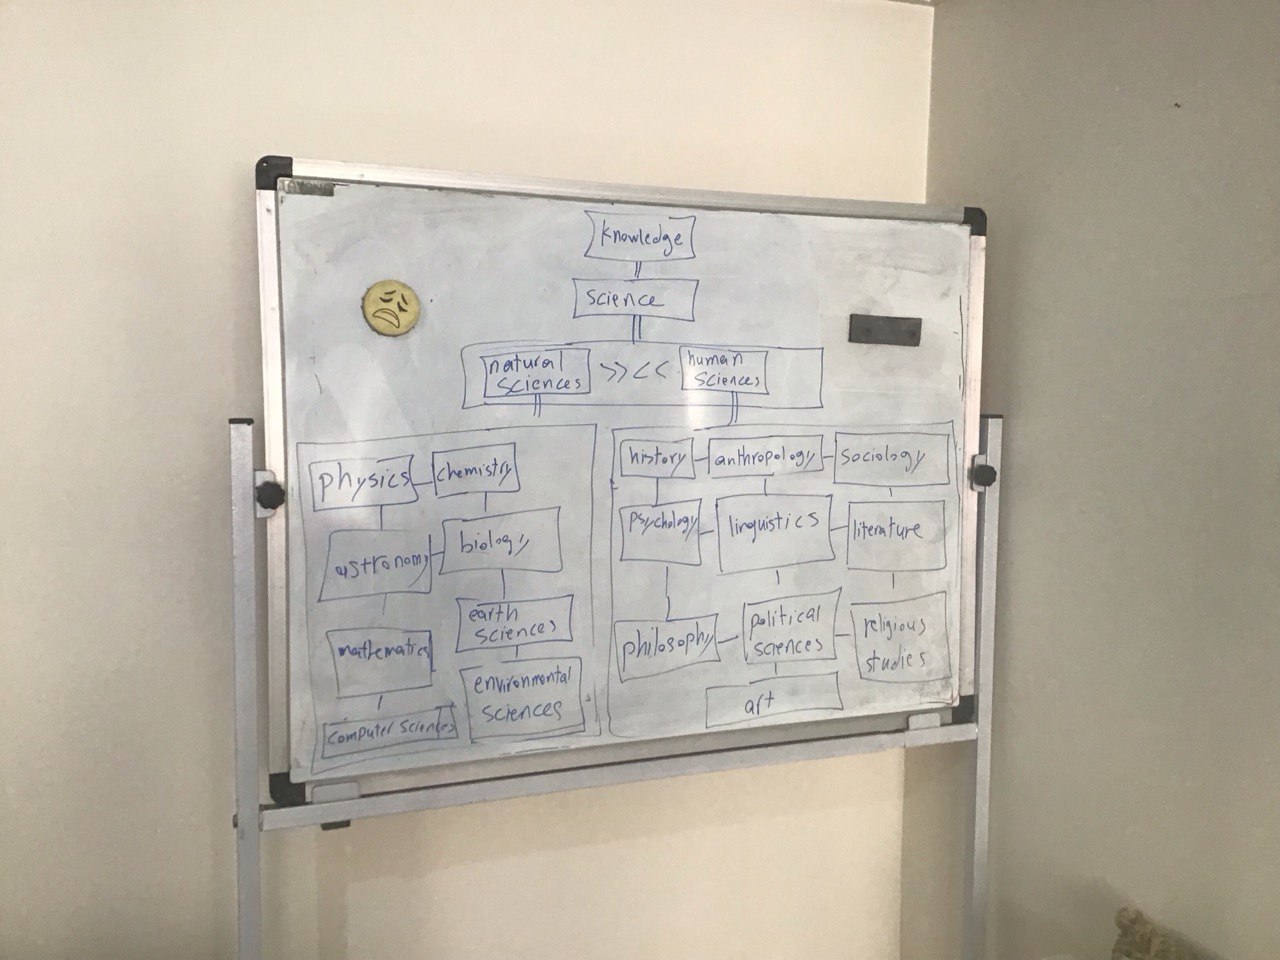 knowledge
science
natural
sciences
>> <<
human
sciences
physics
chemistry
astronomy
biology
mathematics
earth
sciences
computer sciences
environmental
sciences
history
anthropology
sociology
psychology
linguistics
literature
philosophy
political
sciences
religious
studies
art